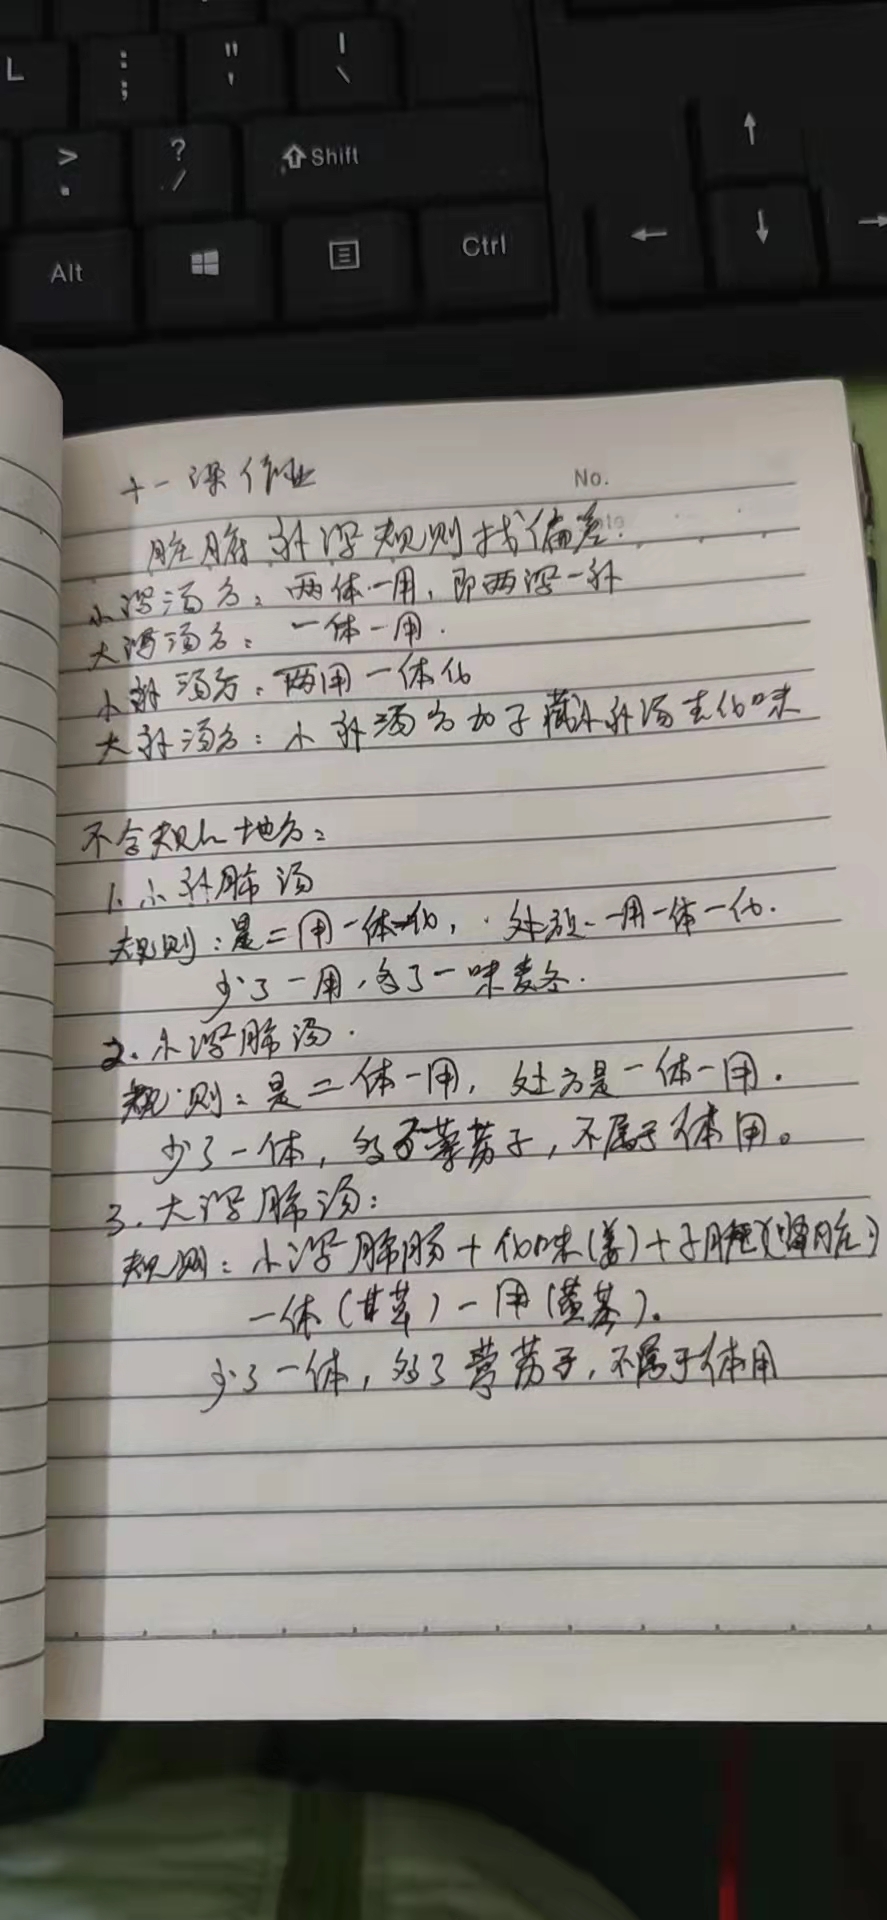 L
:
;
"
'
|
\
>
.
?
/
Shift
Alt
Ctrl
No.
十一课作业
脏腑补泻规则找偏差.
小泻汤方: 两体一用, 即两泻一补
大泻汤方: 一体一用.
小补汤方: 两用一体化
大补汤方: 小补汤方加子藏小补汤去化味
不合规的地方:
1. 小补肺汤
规则: 是二用一体一化, 处方一用一体一化.
少了一用, 多了一味麦冬.
2. 小泻肺汤.
规则: 是二体一用, 处方是一体一用.
少了一体, 多了葶苈子, 不属于体用。
3. 大泻肺汤:
规则: 小泻肺汤 + 化味(姜) + 子脏(肾脏)
一体(甘草) 一用(黄芩).
少了一体, 多了葶苈子, 不属于体用